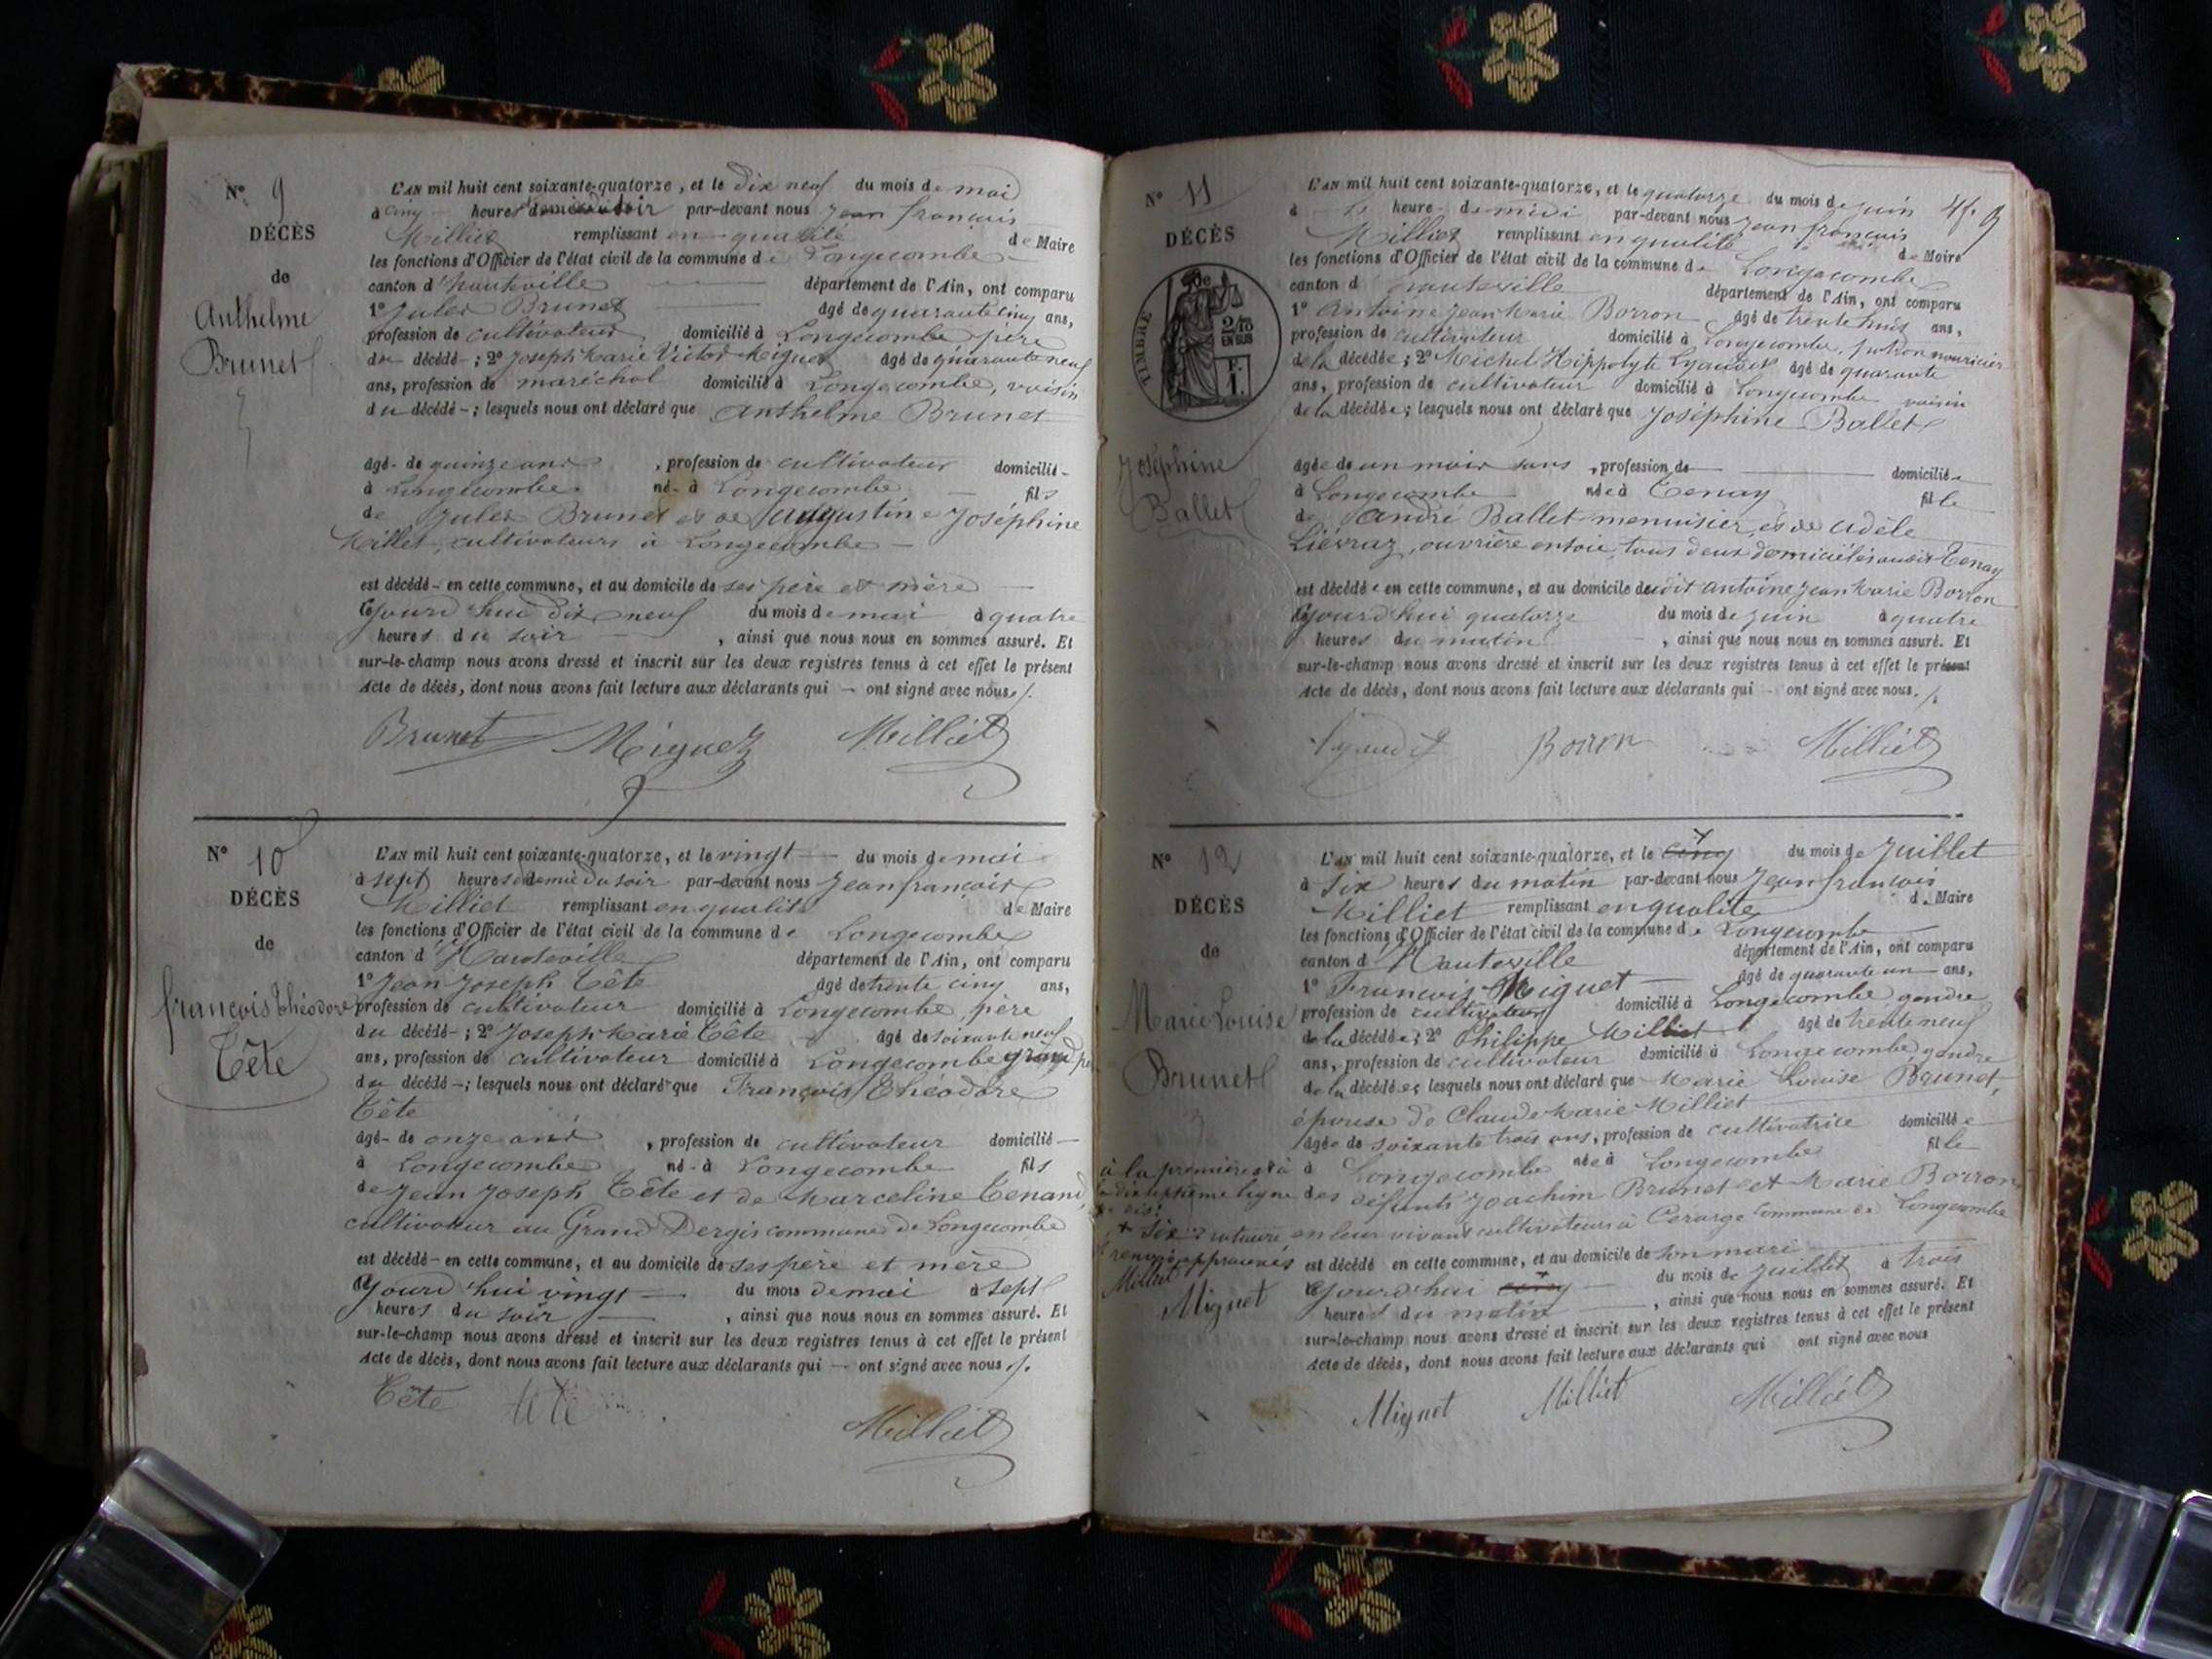 N° 9
DÉCÈS
de
Anthelme
Brunet
L'AN mil huit cent soixante-quatorze, et le dix neuf du mois de mai
à cinq heures du soir par-devant nous Jean françois
Milliet remplissant en qualité de Maire
les fonctions d'Officier de l'état civil de la commune de Longecombe
canton d'hauteville département de l'Ain, ont comparu
1° Jules Brunet âgé de quarante cinq ans,
profession de cultivateur domicilié à Longecombe père
du décédé ; 2° Joseph Marie Victor Miguet âgé de quarante neuf
ans, profession de maréchal domicilié à Longecombe, voisin
du décédé ; lesquels nous ont déclaré que Anthelme Brunet
âgé de quinze ans , profession de cultivateur domicilié
à Longecombe né à Longecombe fils
de Jules Brunet et de Augustine Joséphine
Millet, cultivateurs à Longecombe
est décédé en cette commune, et au domicile de ses père et mère
cejourd'hui dix neuf du mois de mai à quatre
heures du soir , ainsi que nous nous en sommes assuré. Et
sur-le-champ nous avons dressé et inscrit sur les deux registres tenus à cet effet le présent
Acte de décès, dont nous avons fait lecture aux déclarants qui ont signé avec nous.
Brunet Miguet Milliet
N° 10
DÉCÈS
de
françois théodore
Tête
L'AN mil huit cent soixante-quatorze, et le vingt du mois de mai
à sept heures et demie du soir par-devant nous Jean françois
Milliet remplissant en qualité de Maire
les fonctions d'Officier de l'état civil de la commune de Longecombe
canton d'Hauteville département de l'Ain, ont comparu
1° Jean Joseph Tête âgé de trente cinq ans,
profession de cultivateur domicilié à Longecombe, père
du décédé ; 2° Joseph Marie Tête âgé de soixante neuf
ans, profession de cultivateur domicilié à Longecombe grand pè
du décédé ; lesquels nous ont déclaré que François Théodore
Tête
âgé de onze ans , profession de cultivateur domicilié
à Longecombe né à Longecombe fils
de Jean Joseph Tête et de Marceline Tenand,
cultivateur au Grand Dergis commune de Longecombe
est décédé en cette commune, et au domicile de ses père et mère
cejourd'hui vingt du mois de mai à sept
heures du soir , ainsi que nous nous en sommes assuré. Et
sur-le-champ nous avons dressé et inscrit sur les deux registres tenus à cet effet le présent
Acte de décès, dont nous avons fait lecture aux déclarants qui ont signé avec nous.
Tête tête Milliet
N° 11
DÉCÈS
de
TIMBRE
2/10
EN SUS
F.
1.
Joséphine
Ballet
L'AN mil huit cent soixante-quatorze, et le quatorze du mois de juin 4f. 9
à heure de midi par-devant nous Jean françois
Milliet remplissant en qualité de Maire
les fonctions d'Officier de l'état civil de la commune de Longecombe
canton d'hauteville département de l'Ain, ont comparu
1° Antoine Jean Marie Borron âgé de trente huit ans,
profession de cultivateur domicilié à Longecombe, patron nouricier
de la décédée ; 2° Michel Hippolyte Lyaudet âgé de quarante
ans, profession de cultivateur domicilié à Longecombe voisin
de la décédée ; lesquels nous ont déclaré que Joséphine Ballet
âgée de un mois sans , profession de domiciliée
à Longecombe née à Tenay fille
de André Ballet menuisier, et de Adèle
Liévraz, ouvrière en soie, tous deux domiciliés audit Tenay
est décédée en cette commune, et au domicile dudit Antoine Jean Marie Borron
cejourd'hui quatorze du mois de juin à quatre
heures du matin , ainsi que nous nous en sommes assuré. Et
sur-le-champ nous avons dressé et inscrit sur les deux registres tenus à cet effet le présent
Acte de décès, dont nous avons fait lecture aux déclarants qui ont signé avec nous.
Lyaudet Borron Milliet
N° 12
DÉCÈS
de
Marie Louise
Brunet
L'AN mil huit cent soixante-quatorze, et le cinq + du mois de Juillet
à six heures du matin par-devant nous Jean françois
Milliet remplissant en qualité de Maire
les fonctions d'Officier de l'état civil de la commune de Longecombe
canton d'Hauteville département de l'Ain, ont comparu
1° François Miguet âgé de quarante un ans,
profession de cultivateur domicilié à Longecombe, gendre
de la décédée ; 2° Philippe Milliet âgé de trente neuf
ans, profession de cultivateur domicilié à Longecombe gendre
de la décédée ; lesquels nous ont déclaré que Marie Louise Brunet,
épouse de Claude Marie Milliet
âgée de soixante trois ans, profession de cultivatrice domiciliée
à Longecombe née à Longecombe fille
des défunts Joachim Brunet et Marie Borron
en leur vivant cultivateurs à Cerarge commune de Longecombe
est décédé en cette commune, et au domicile de son mari
cejourd'hui cinq + du mois de juillet à trois
heures du matin , ainsi que nous nous en sommes assuré. Et
sur-le-champ nous avons dressé et inscrit sur les deux registres tenus à cet effet le présent
Acte de décès, dont nous avons fait lecture aux déclarants qui ont signé avec nous
Miguet Milliet Milliet
à la première et à
la dix septième ligne
+ six rature
renvoi approuvés
Milliet
Miguet